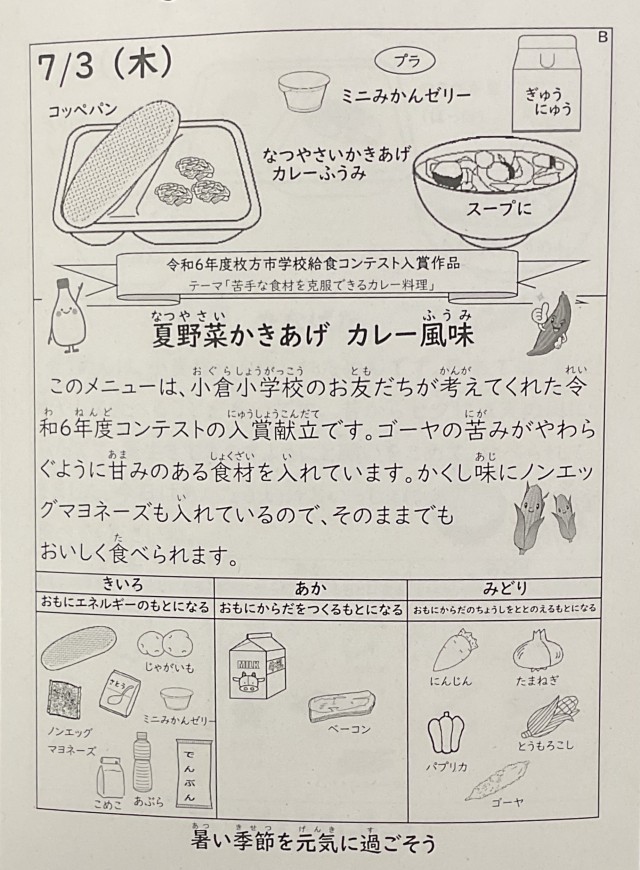 B
7/3（木）
プラ
ミニみかんゼリー
ぎゅう
にゅう
コッペパン
なつやさいかきあげ
カレーふうみ
スープに
令和6年度枚方市学校給食コンテスト入賞作品
テーマ「苦手な食材を克服できるカレー料理」
なつやさい ふうみ
夏野菜かきあげ カレー風味
おぐらしょうがっこう とも かんが れい
このメニューは、小倉小学校のお友だちが考えてくれた令
わ ねんど にゅうしょうこんだて にが
和6年度コンテストの入賞献立です。ゴーヤの苦みがやわら
あま しょくざい い あじ
ぐように甘みのある食材を入れています。かくし味にノンエッ
い
グマヨネーズも入れているので、そのままでも
た
おいしく食べられます。
きいろ あか みどり
おもにエネルギーのもとになる おもにからだをつくるもとになる おもにからだのちょうしをととのえるもとになる
じゃがいも
さとう
ミニみかんゼリー
ノンエッグ
マヨネーズ
こめこ
あぶら
でんぷん
MILK
ベーコン
にんじん
たまねぎ
パプリカ
とうもろこし
ゴーヤ
あつ きせつ げんき す
暑い季節を元気に過ごそう